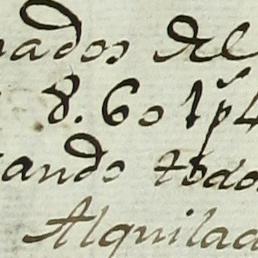 nados Al
8. 60 1p4
ando todo
Alquilad